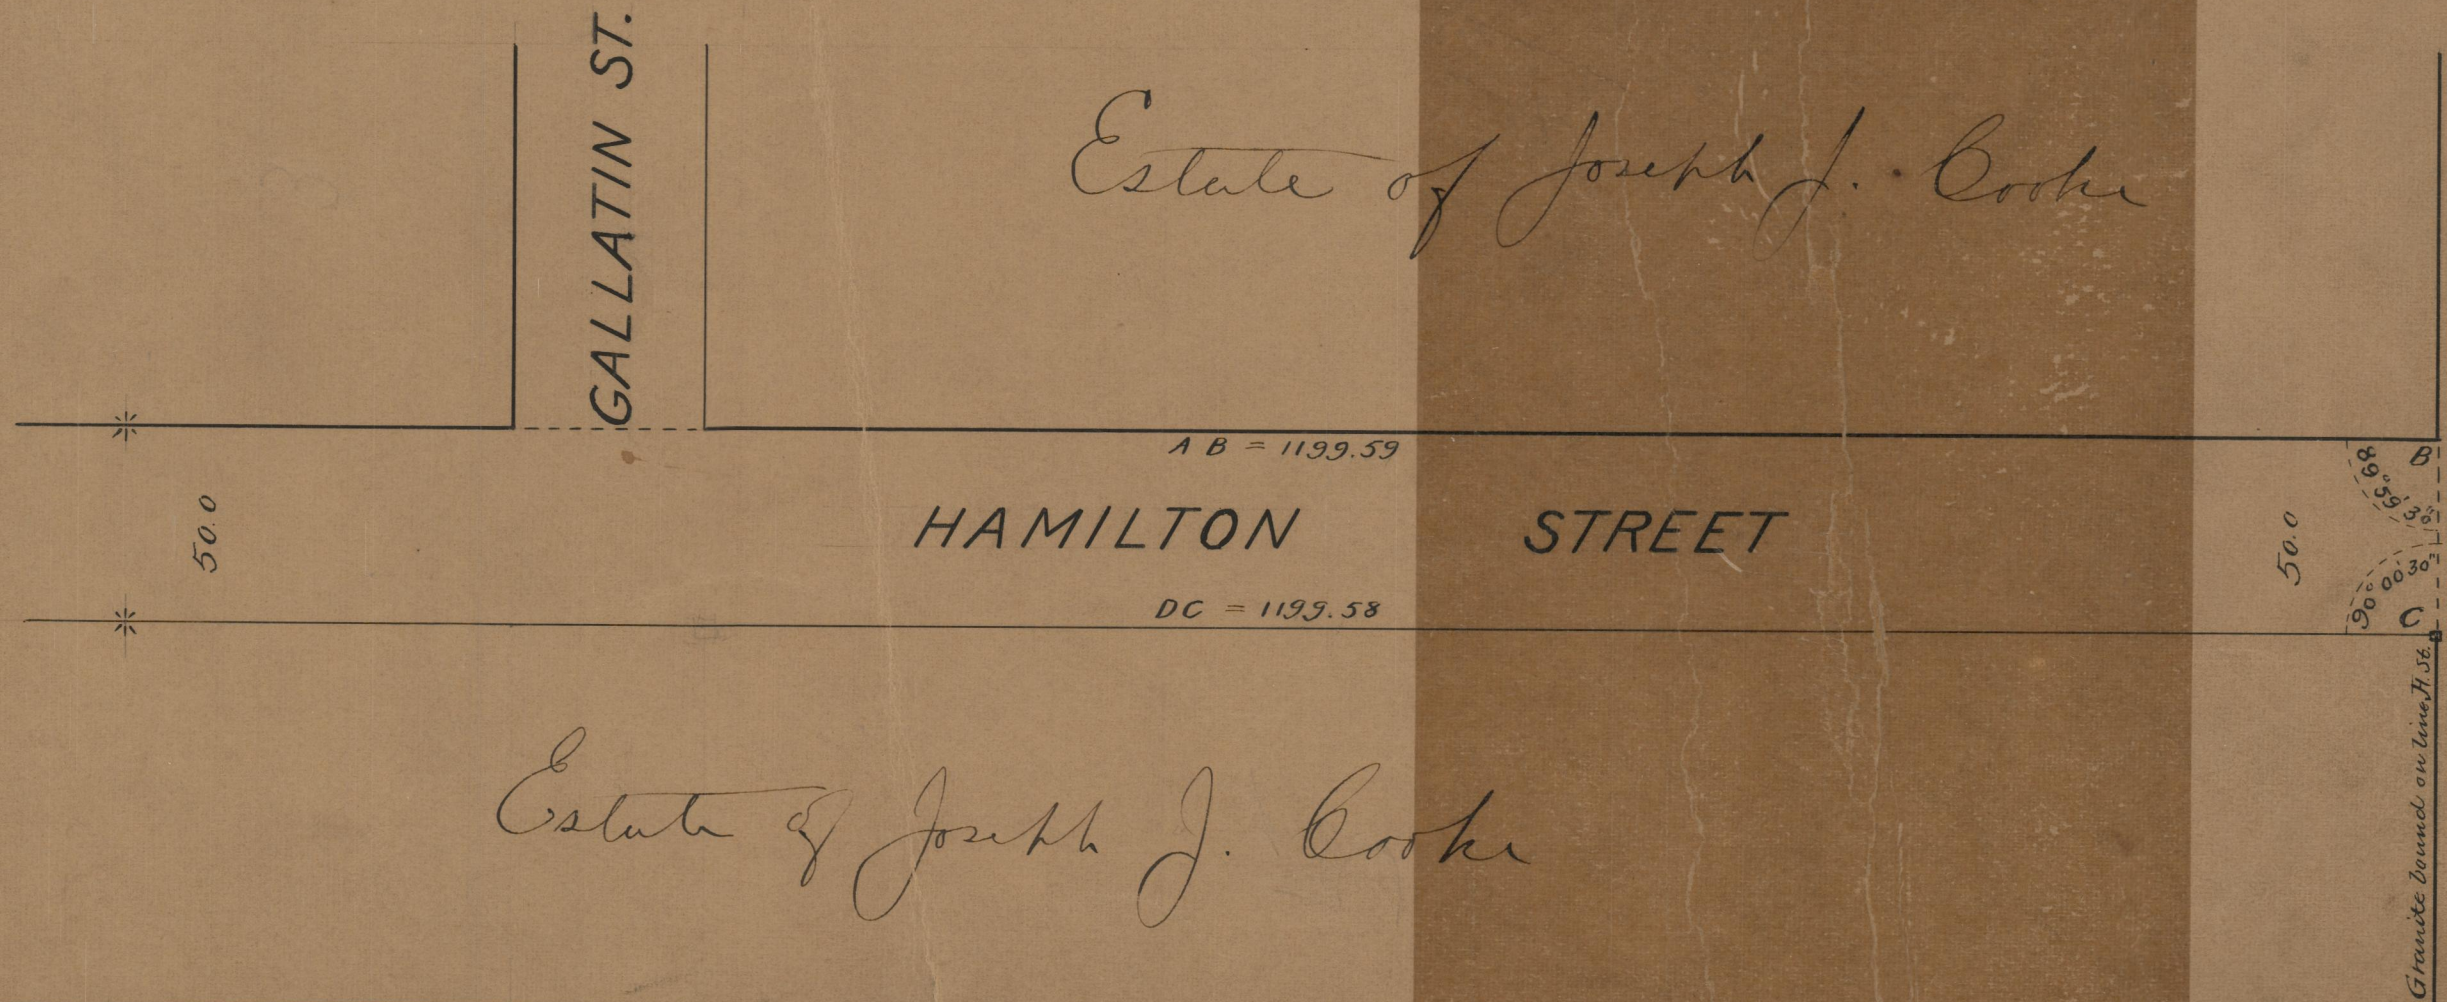 GALLATIN ST.
Estate of Joseph J. Cooke
A B = 1199.59
B
89° 59' 30"
50.0
HAMILTON STREET
50.0
90° 00' 30"
DC = 1199.58
C
Estate of Joseph J. Cooke
Granite bound on line H. St.